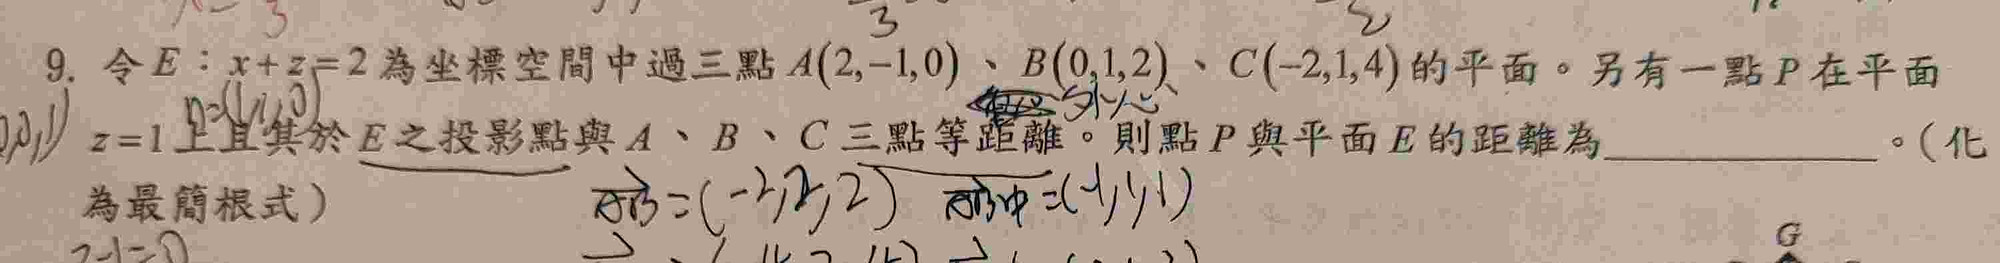 9. 令 E：x+z=2 為坐標空間中過三點 A(2,-1,0)、B(0,1,2)、C(-2,1,4) 的平面。另有一點 P 在平面
n=(1,1,0) 外心
z=1 上且其於 E 之投影點與 A、B、C 三點等距離。則點 P 與平面 E 的距離為________。(化
為最簡根式)
AB=(-2,2,2) AB中=(-1,1,1)
z-1=0
G